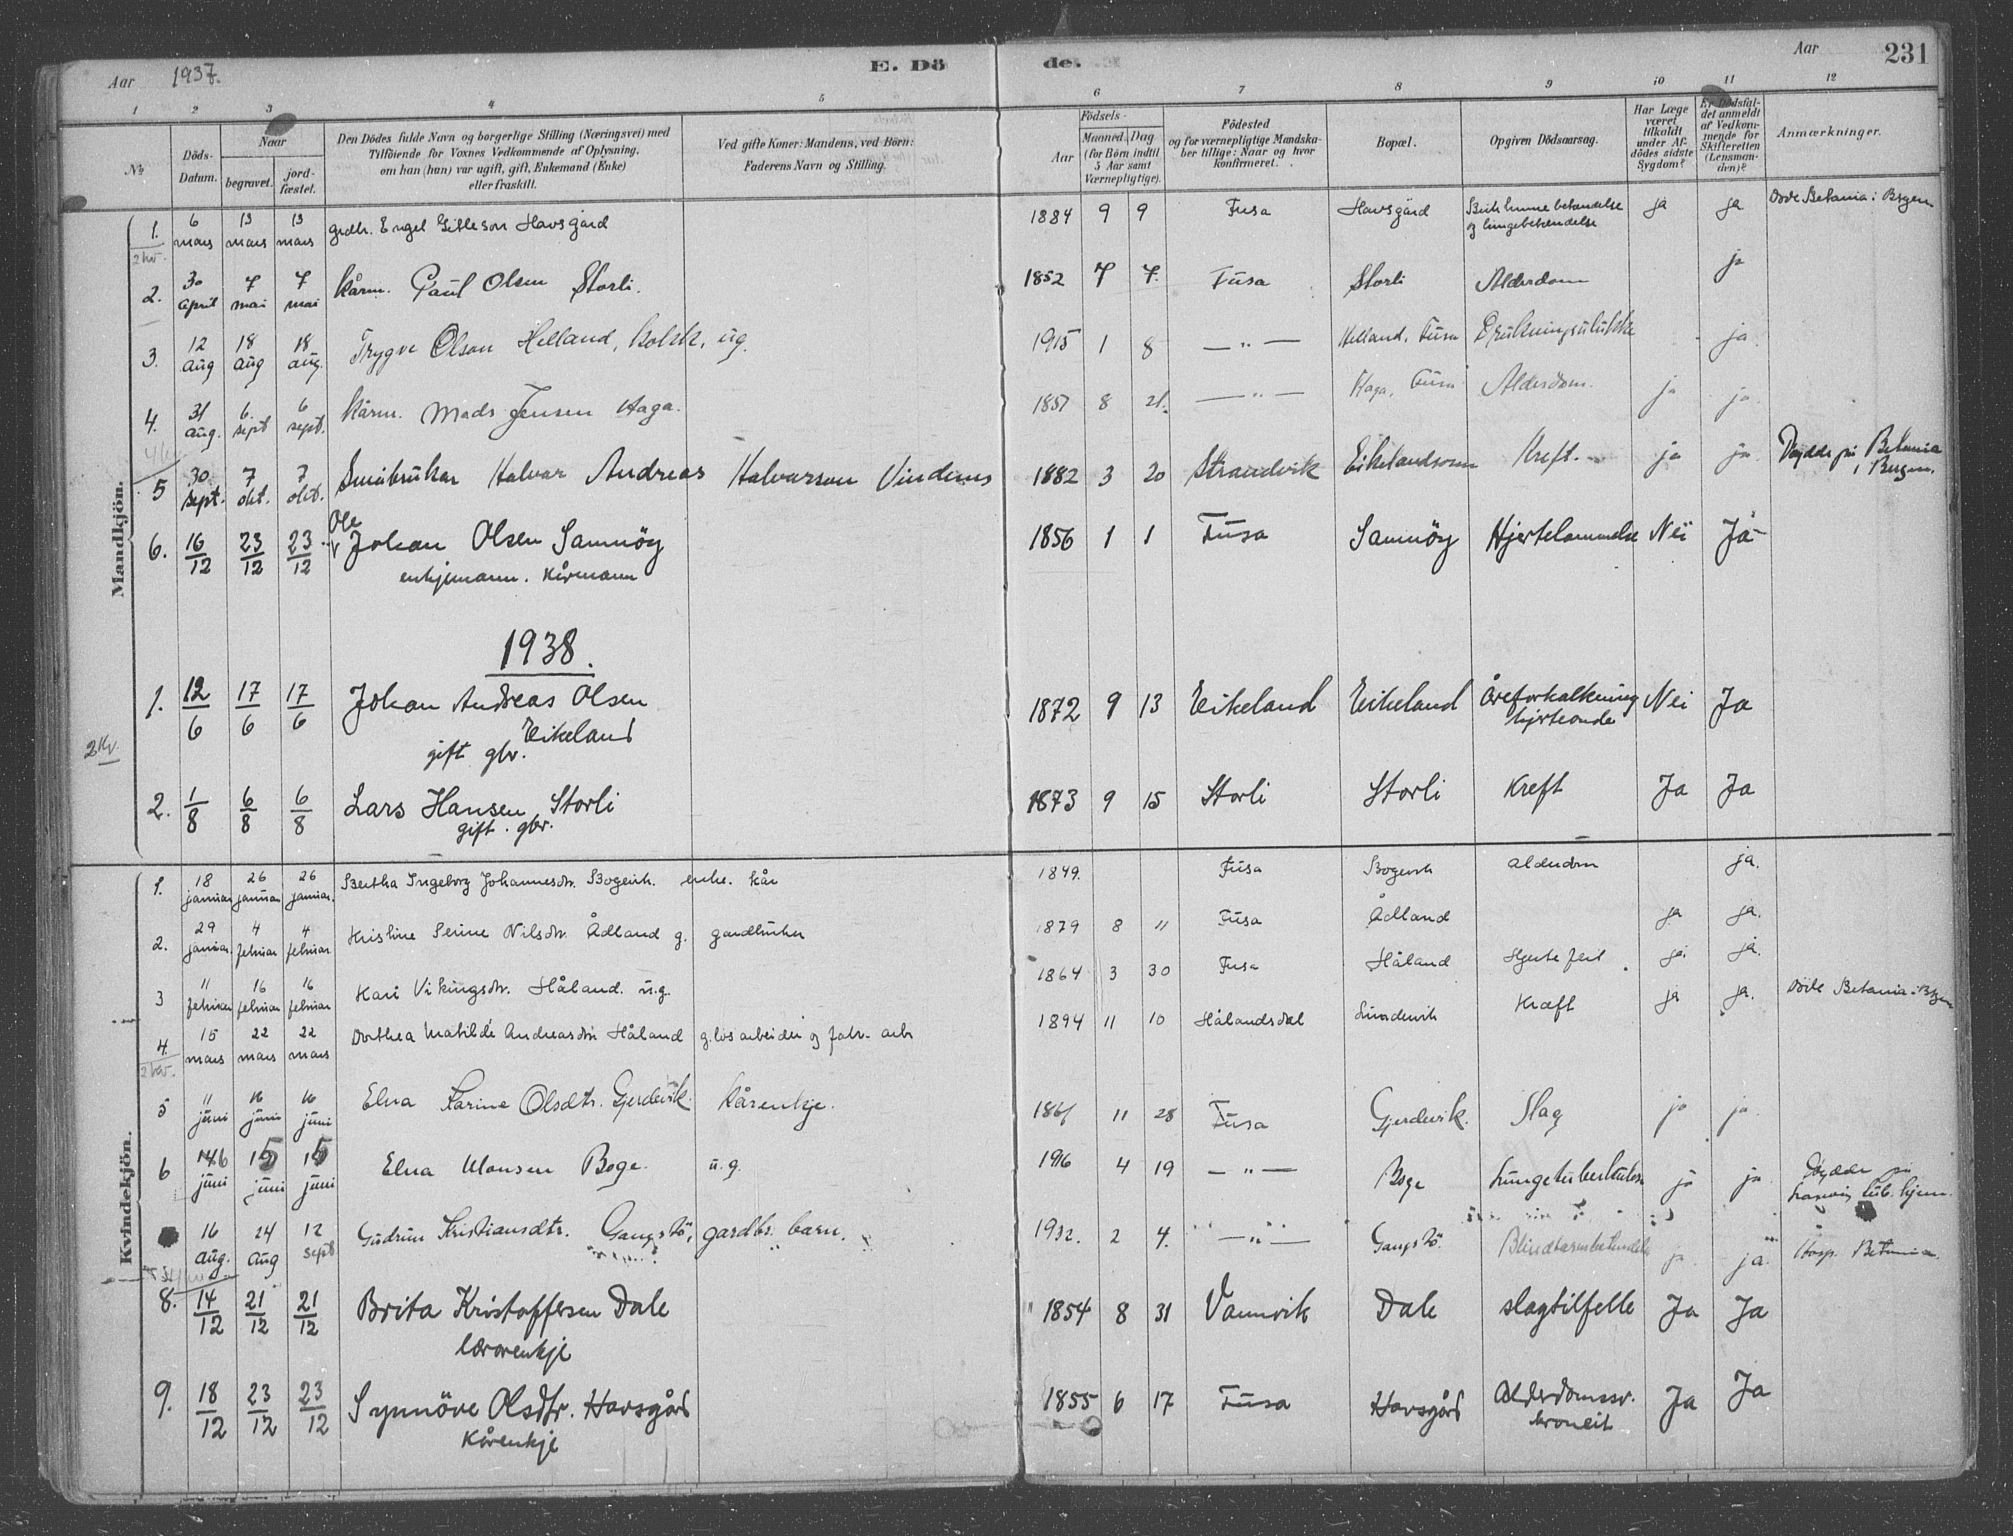 Aar 1937.
E. Döde.
Aar
231
1 2 3 4 5 6 7 8 9 10 11 12
No.
Döds-Datum.
Naar
begravet.
jord-fæstet.
Den Dödes fulde Navn og borgerlige Stilling (Næringsvei) med
Tilföiende for Voxnes Vedkommende af Oplysning,
om han (hun) var ugift, gift, Enkemand (Enke)
eller fraskilt.
Ved gifte Koner: Mandens, ved Börn:
Faderens Navn og Stilling.
Födsels-
Aar
Maaned. Dag
(for Börn indtil
5 Aar samt
Værnepligtige).
Födested
og for værnepligtige Mandska-
ber tillige: Naar og hvor
konfirmeret.
Bopæl.
Opgiven Dödsaarsag.
Har Læge
været
tilkaldt
under Af-
dödes sidste
Sygdom?
Er Dödsfal-
det anmeldt
af Vedkom-
mende for
Skifteretten
(Lensman-
den)?
Anmærkninger.
Mandkjön.
1. 6 mars 13 mars 13 mars grdbr. Engel Gitleson Havsgård 1884 9 9 Fusa Havsgård og lungebetendelse ja ja Döde Betania i Bergen
2 kv.
2. 30 april 7 mai 7 mai Kårm. Paul Olsen Storli. 1852 7 7. Fusa Storli Alderdom ja
3. 12 aug 18 aug 18 aug. Trygve Olson Helland, ug. 1915 1 8 —"— Helland, Fusa Drukningsulukke ja.
4. 31 aug. 6. sept 6 sept. Kårm. Mads Jensen Haga. 1857 8 21. —"— Haga, Fusa Alderdom. ja ja
5 30 sept. 7 okt. 7 okt. Småbrukar Halvar Andreas Halvarson Vindenes 1882 3 20 Strandvik Eikelandsosen Kreft. ja ja Döydde på Betania i Bergen.
6. 16/12 23/12 23/12 Ole
Johan Olsen Samnöy 1856 1 1 Fusa Samnöy Hjertelammelse Nei Ja
enkjemann. Kårmann
1938.
1. 12/6 17/6 17/6 Johan Andreas Olsen 1872 9 13 Eikeland Eikeland Åreforkalkning Nei Ja
Eikeland hjerteonde
gift gbr.
2 Kv.
2. 1/8 6/8 6/8 Lars Hansen Storli 1873 9 15 Storli Storli Kreft Ja Ja
gift. gbr.
Kvindekjön.
1. 18 januar 26 januar 26 januar. Bertha Ingeborg Johannesdtr. Bogevik. enke. kår 1849. Fusa Bogevik alderdom ja.
2. 29 januar. 4 februar 4 februar Kristine Serine Nilsdtr. Ådland g. gardbruker 1879 8 11 Fusa Ådland ja ja.
3 11 februar 16 februar 16 februar Kari Vikingsdtr. Håland. u.g. 1864 3 30 Fusa Håland Hjertefeil. ja ja.
4. 15 mars 22 mars 22 mars Dorthea Matilde Andreasdtr Håland g. lös arbeider og fabr. arb 1894 11 10 Hålandsdal Kræft ja ja. Döde Betania i Bergen
2 kv.
5 11 juni 16 juni 16 juni Elna Karine Olsdtr. Gjerdevik. Kårenkje. 1861 11 28 Fusa Gjerdevik. Slag ja ja.
6 juni 15 juni 15 juni Elna Monsen Boge. u.g. 1916 4 19 —"— Boge Lungetuberkulose ja ja. Döydde på tub. hjem.
16 aug. 24 aug 12 sept Gudrun Kristiansdtr. Gangstö, gardbr. barn. 1932. 2 4. —"— Gangstö. Blindtarmbetendelse ja. ja. Hosp. Betania.
8. 14/12 21/12 21/12 Brita Kristoffersen Dale 1854 8 31 Vamvik Dale slagtilfelle Ja Ja
lærerenkje
9. 18/12 23/12 23/12 Synnöve Olsdtr. Havsgård 1855 6 17 Fusa Havsgård Alderdomssv. Ja Ja
Kårenkje bronkit